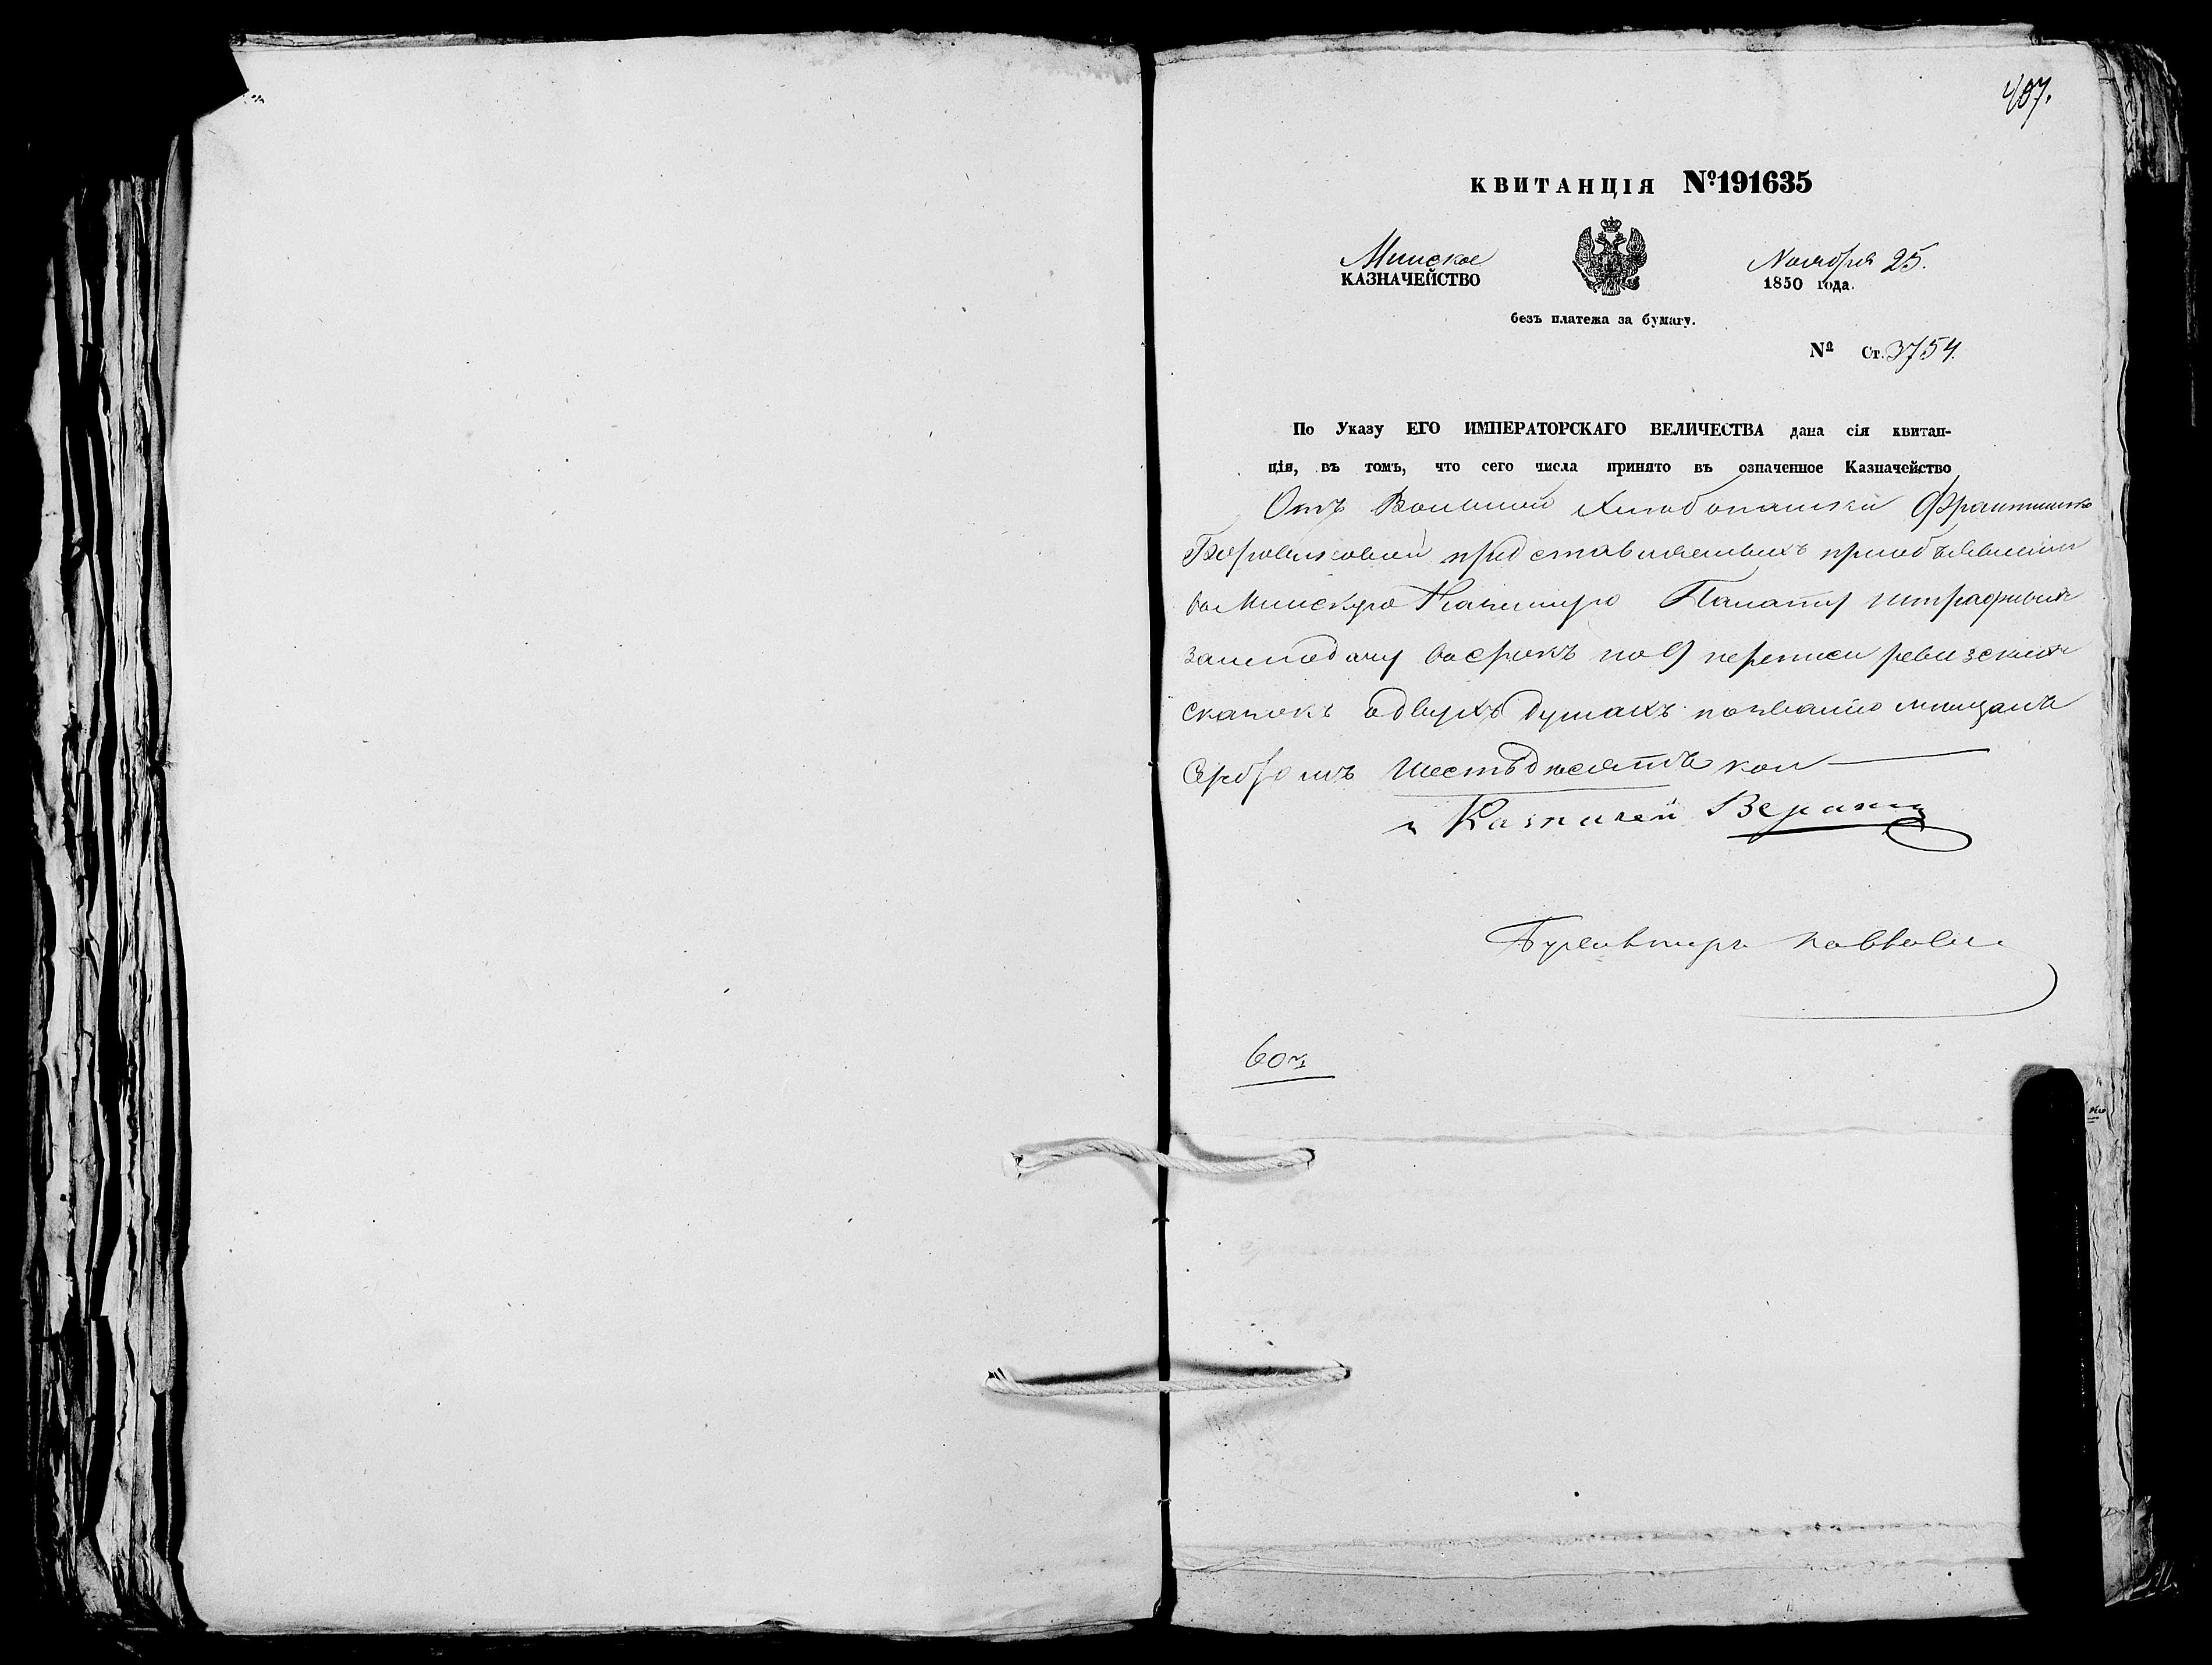 407.
КВИТАНЦІЯ №191635
Минское
КАЗНАЧЕЙСТВО
Ноября 25.
1850 года.
безъ платежа за бумагу.
№ Ст. 3754.
По Указу ЕГО ИМПЕРАТОРСКАГО ВЕЛИЧЕСТВА дана сія квитан-
ція, въ томъ, что сего числа принято въ означенное Казначейство
Отъ Вольной Хлебопашки Франтишки
представленныхъ приобъявлении
во Минскую Казенную Палату штрафныхъ
занеподачу восрокъ по 9 переписи ревизскихъ
сказокъ одвухъ душахъ мещанъ
Серебромъ Шестьдесятъ коп
Казначей
Бухгалтеръ
60 к